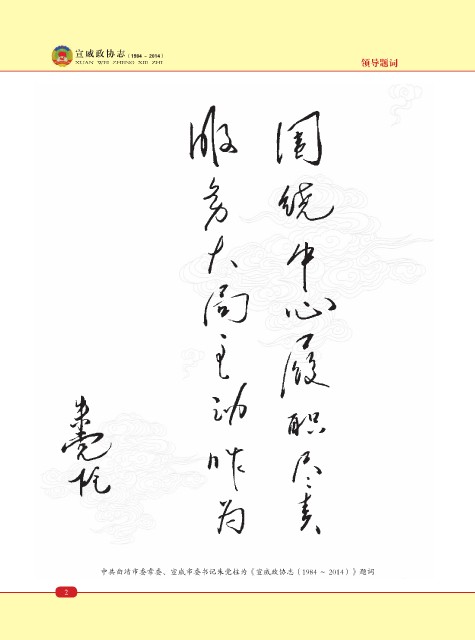 宣威政协志（1984 ~ 2014）
XUAN WEI ZHENG XIE ZHI
领导题词
围绕中心履职尽责
服务大局主动作为
朱党柱
中共曲靖市委常委、宣威市委书记朱党柱为《宣威政协志（1984 ~ 2014）》题词
2